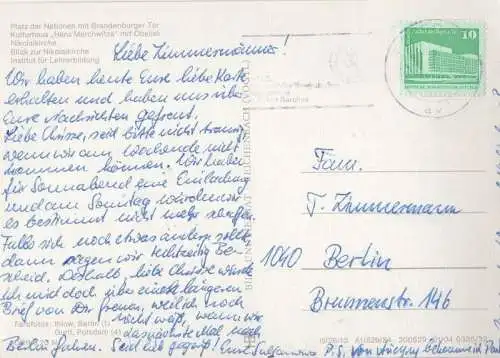 Platz der Nationen mit Brandenburger Tor
Kulturhaus „Hans Marchwitza" mit Obelisk
Nikolaikirche
Blick zur Nikolaikirche
Institut für Lehrerbildung
Liebe Zimmermänner!
Wir haben heute Eure liebe Karte
erhalten und haben uns über
Eure Nachrichten gefreut.
Liebe Christe, seid bitte nicht traurig,
wenn wir am Wochende nicht
kommen können. Wir haben
für Sonnabend eine Einladung
und am Sonntag würden wir
es bestimmt nicht mehr schaffen.
Falls sich noch etwas ändern sollte,
dann sagen wir rechtzeitig Be-
scheid. Deshalb, liebe Christe würde
ich mich doch über einen längeren
Brief von Dir freuen, weil ich noch
nicht weiß, wann wir
das nächste Mal nach
Berlin fahren. Seid lieb gegrüßt! Eure
P.S. von
BILD UND HEIMAT REICHENBACH (VOGTL)
10
Fam.
T. Zimmermann
1040 Berlin
Brunnenstr. 146
Farbfotos: Ihlow, Berlin (1)
Gurtl, Potsdam (4)